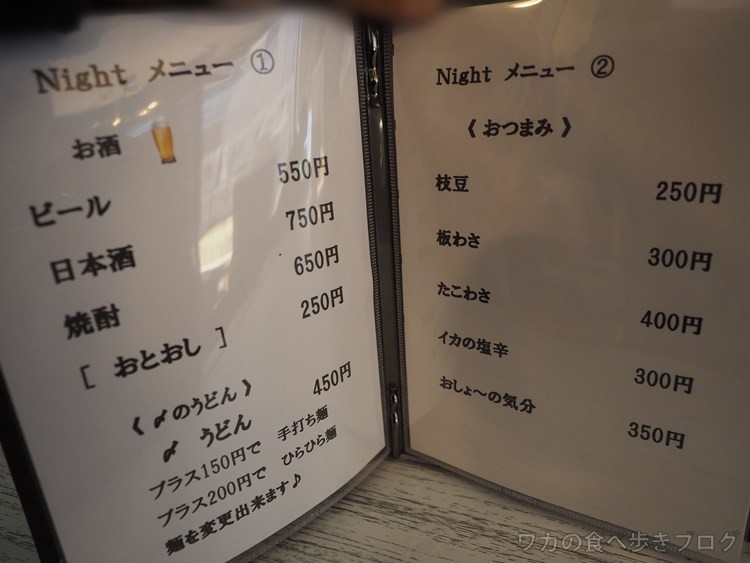 Night メニュー ①
お酒
ビール 550円
日本酒 750円
焼酎 650円
[ おとおし ] 250円
《 〆のうどん 》
〆 うどん 450円
プラス150円で 手打ち麺
プラス200円で ひらひら麺
麺を変更出来ます♪
Night メニュー ②
《 おつまみ 》
枝豆 250円
板わさ 300円
たこわさ 400円
イカの塩辛 300円
おしょ～の気分 350円
ワカの食べ歩きブログ